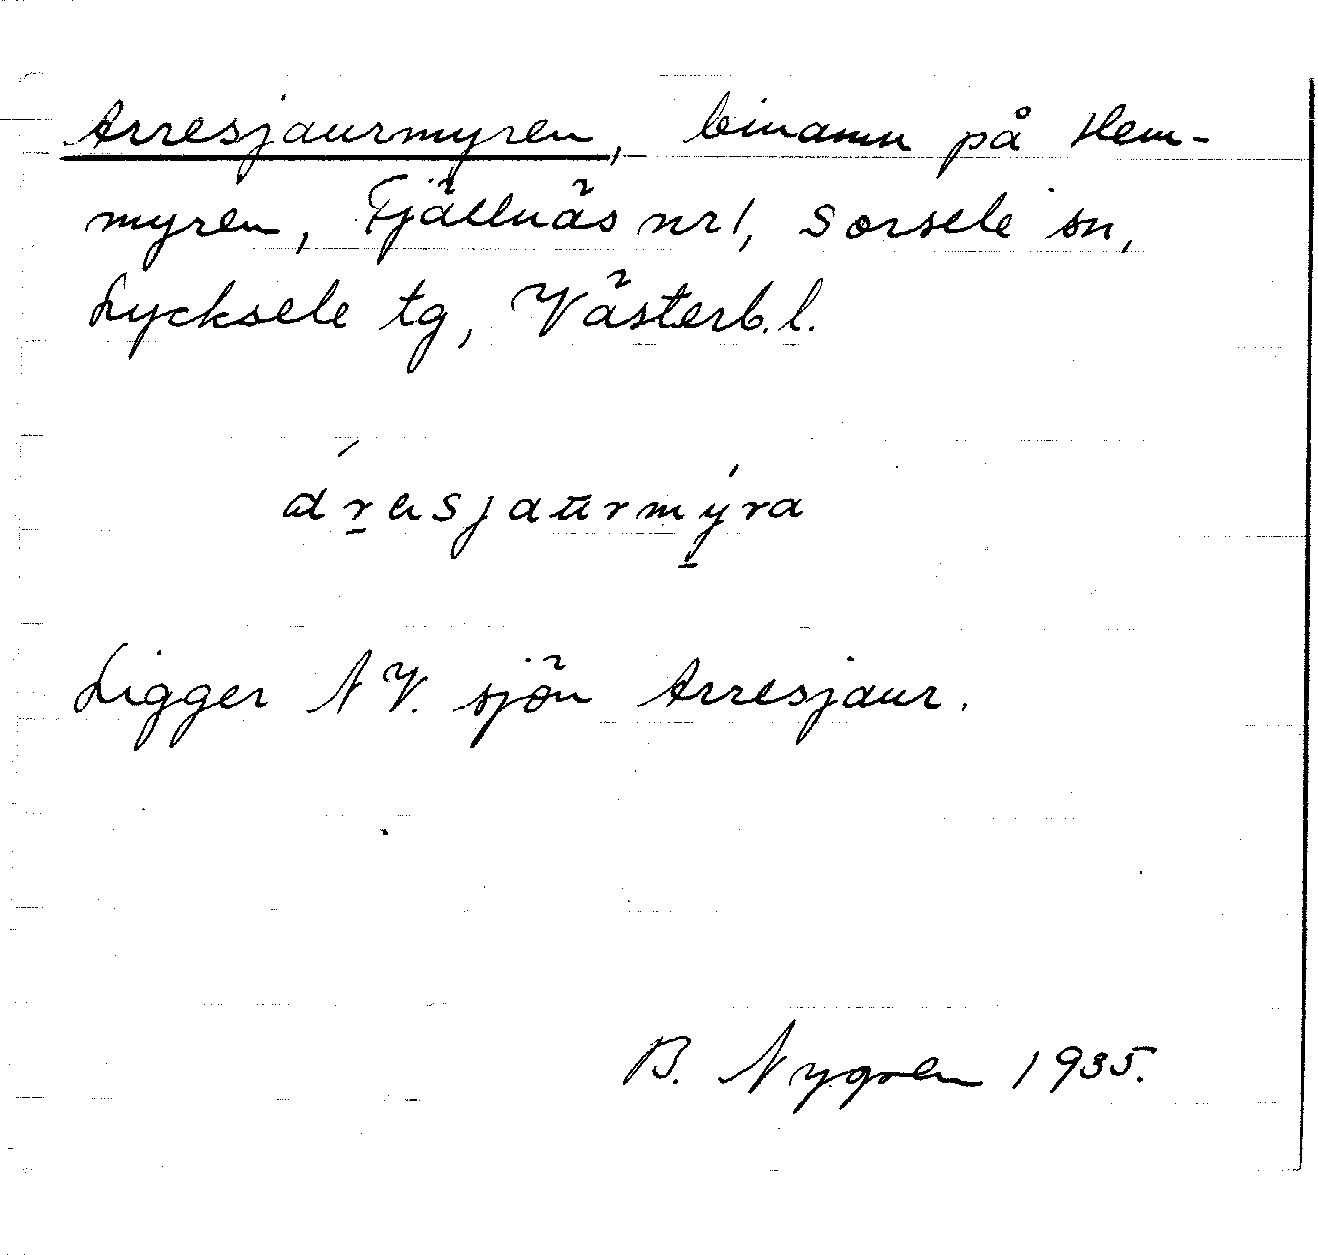 Arresjaurmyren, binamn på Hem-
myren, Fjällnäs nr 1, Sorsele sn,
Lycksele tg, Västerb. l.
ár̠esjau̅rmý̠ra
Ligger NV. sjön Arresjaur.
B. Nygren 1935.